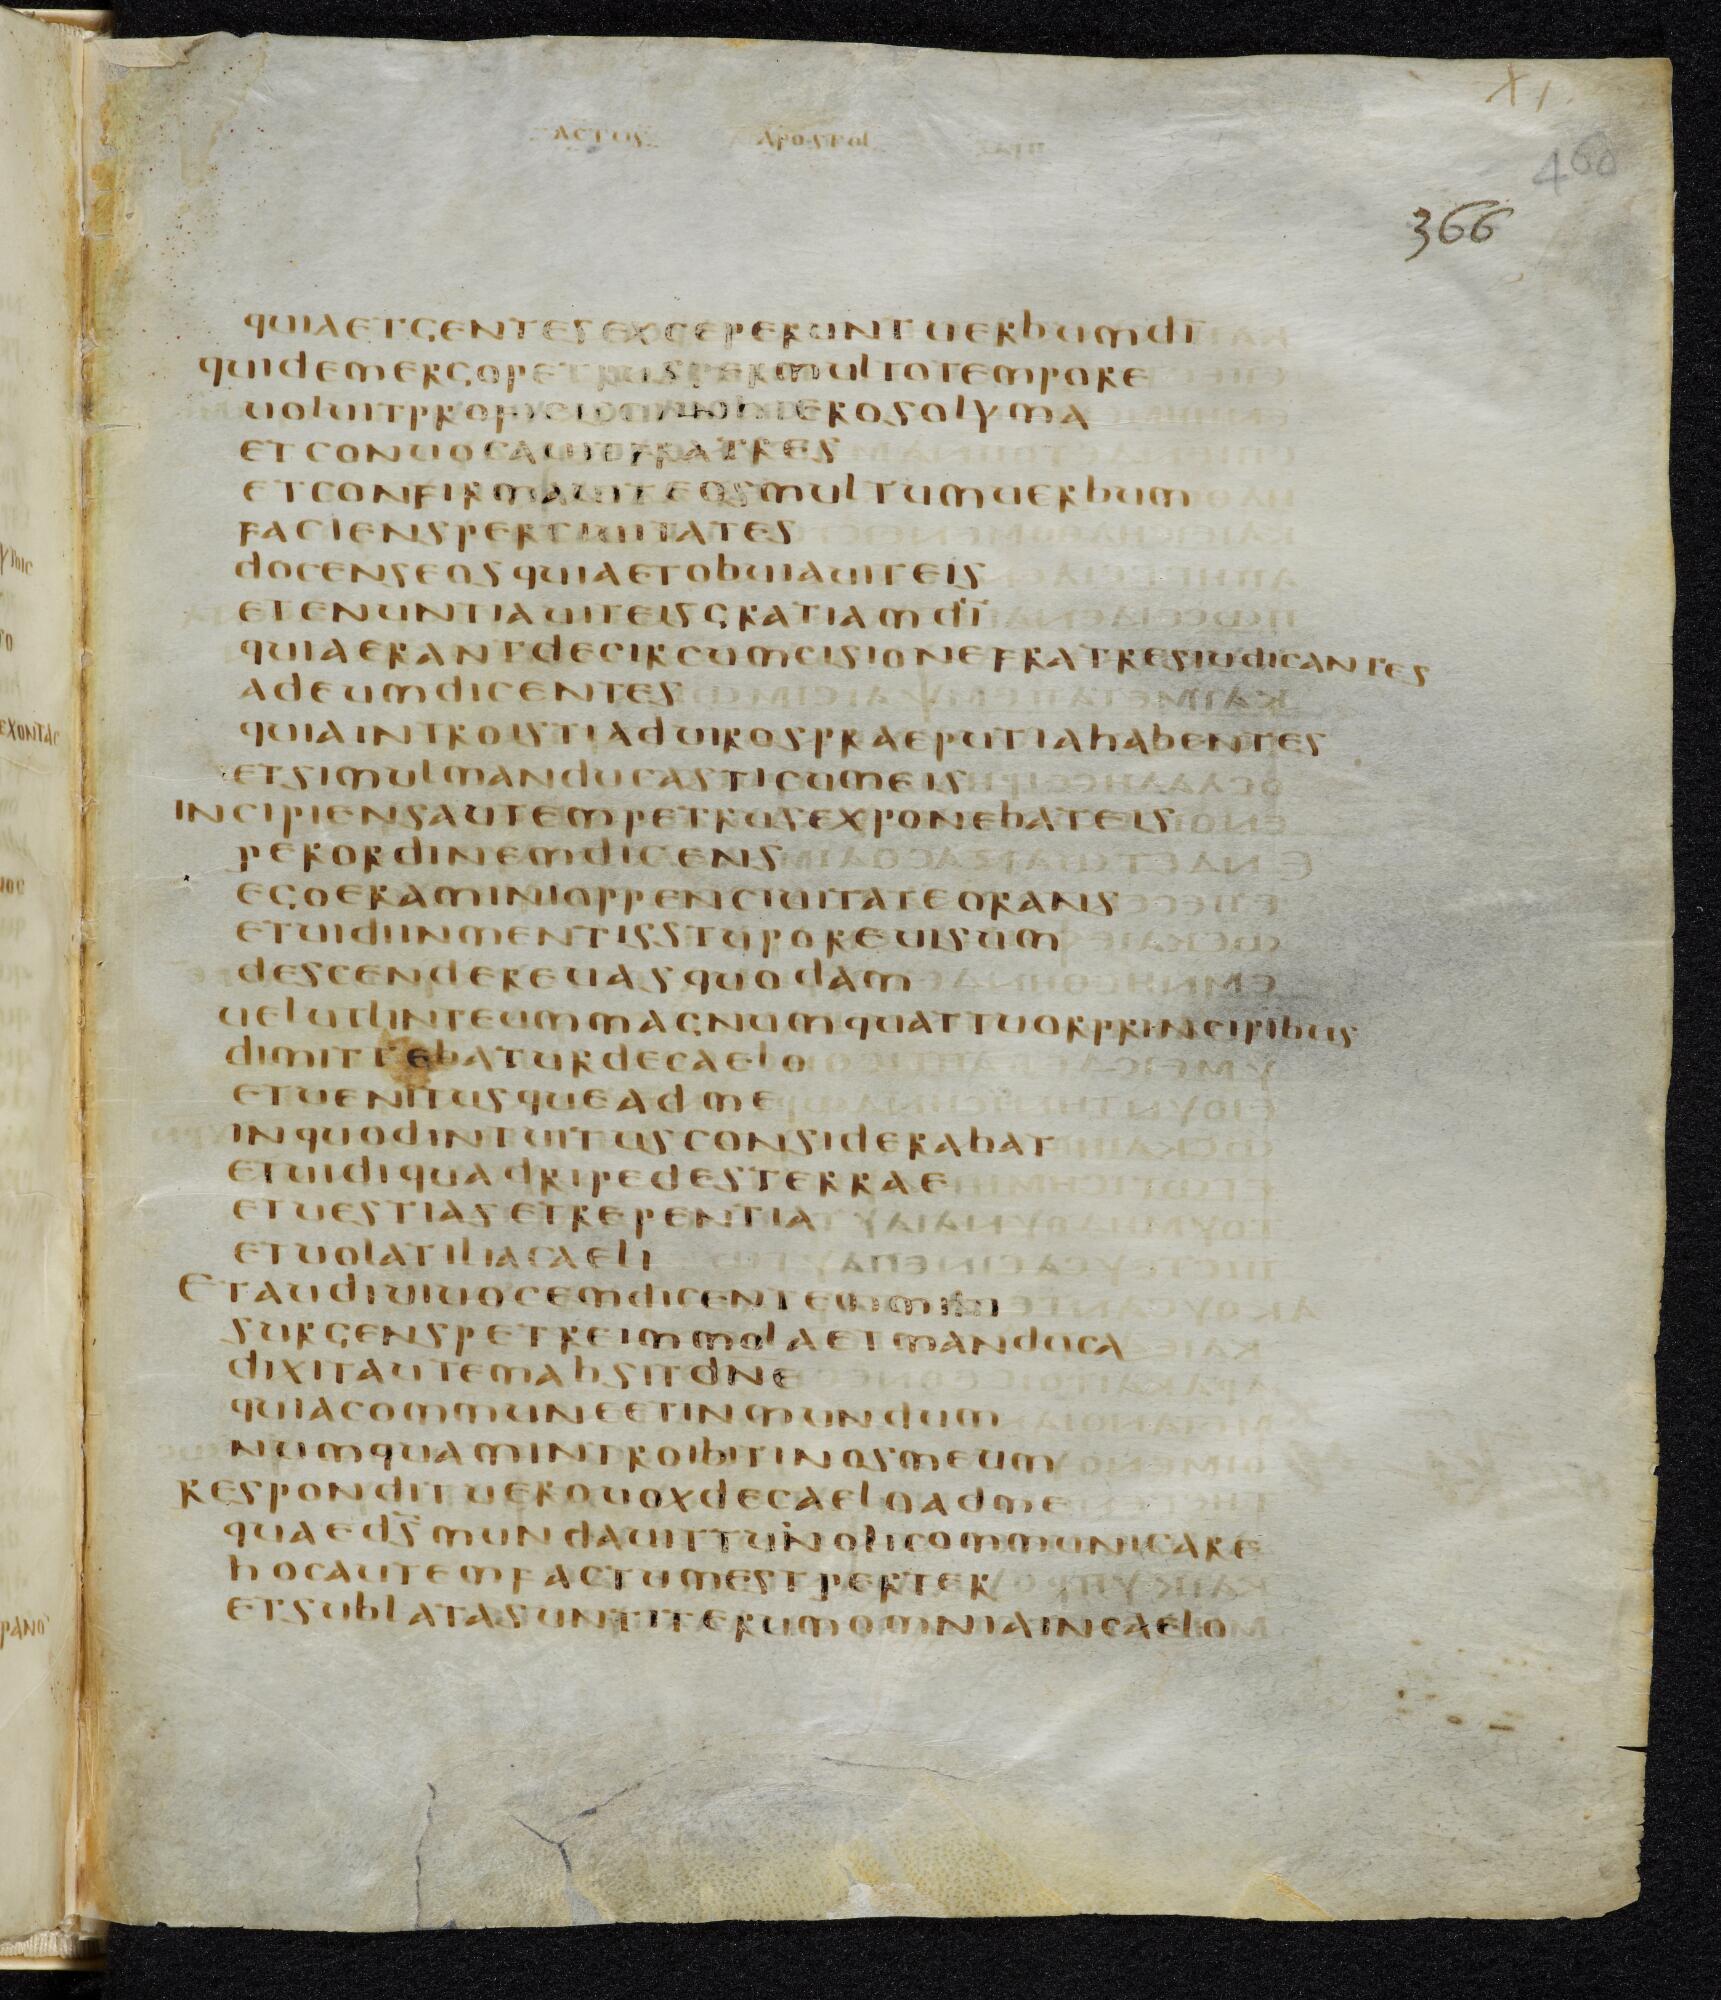 XI
ACTUS APOSTOL
460
366
quia et gentes exceperunt uerbum dī
quidem ergo petrus per multo tempore
uoluit proficisci in hierosolyma
et conuocauit fratres
et confirmauit eos multum uerbum
faciens per ciuitates
docens eos quia et obuiauit eis
et enuntiauit eis gratiam dī
quia erant de circumcisione fratres iudicantes
ad eum dicentes
quia introisti ad uiros praeputia habentes
et simul manducasti cum eis
incipiens autem petrus exponebat eis
per ordinem dicens
ego eram in ioppen ciuitate orans
et uidi in mentis stupore uisum
descendere uas quodam
uelut linteum magnum quattuor principibus
dimittebatur de caelo
et uenit usque ad me
in quod intuitus considerabat
et uidi quadripedes terrae
et uestias et repentia
et uolatilia caeli
Et audiui uocem dicentem mihi
surgens petre immola et manduca
dixit autem absit dne
quia commune et inmundum
numquam introibit in os meum
respondit uero uox de caelo ad me
quae ds̄ mundauit tu noli communicare
hoc autem factum est per ter
et sublata sunt iterum omnia in caelo